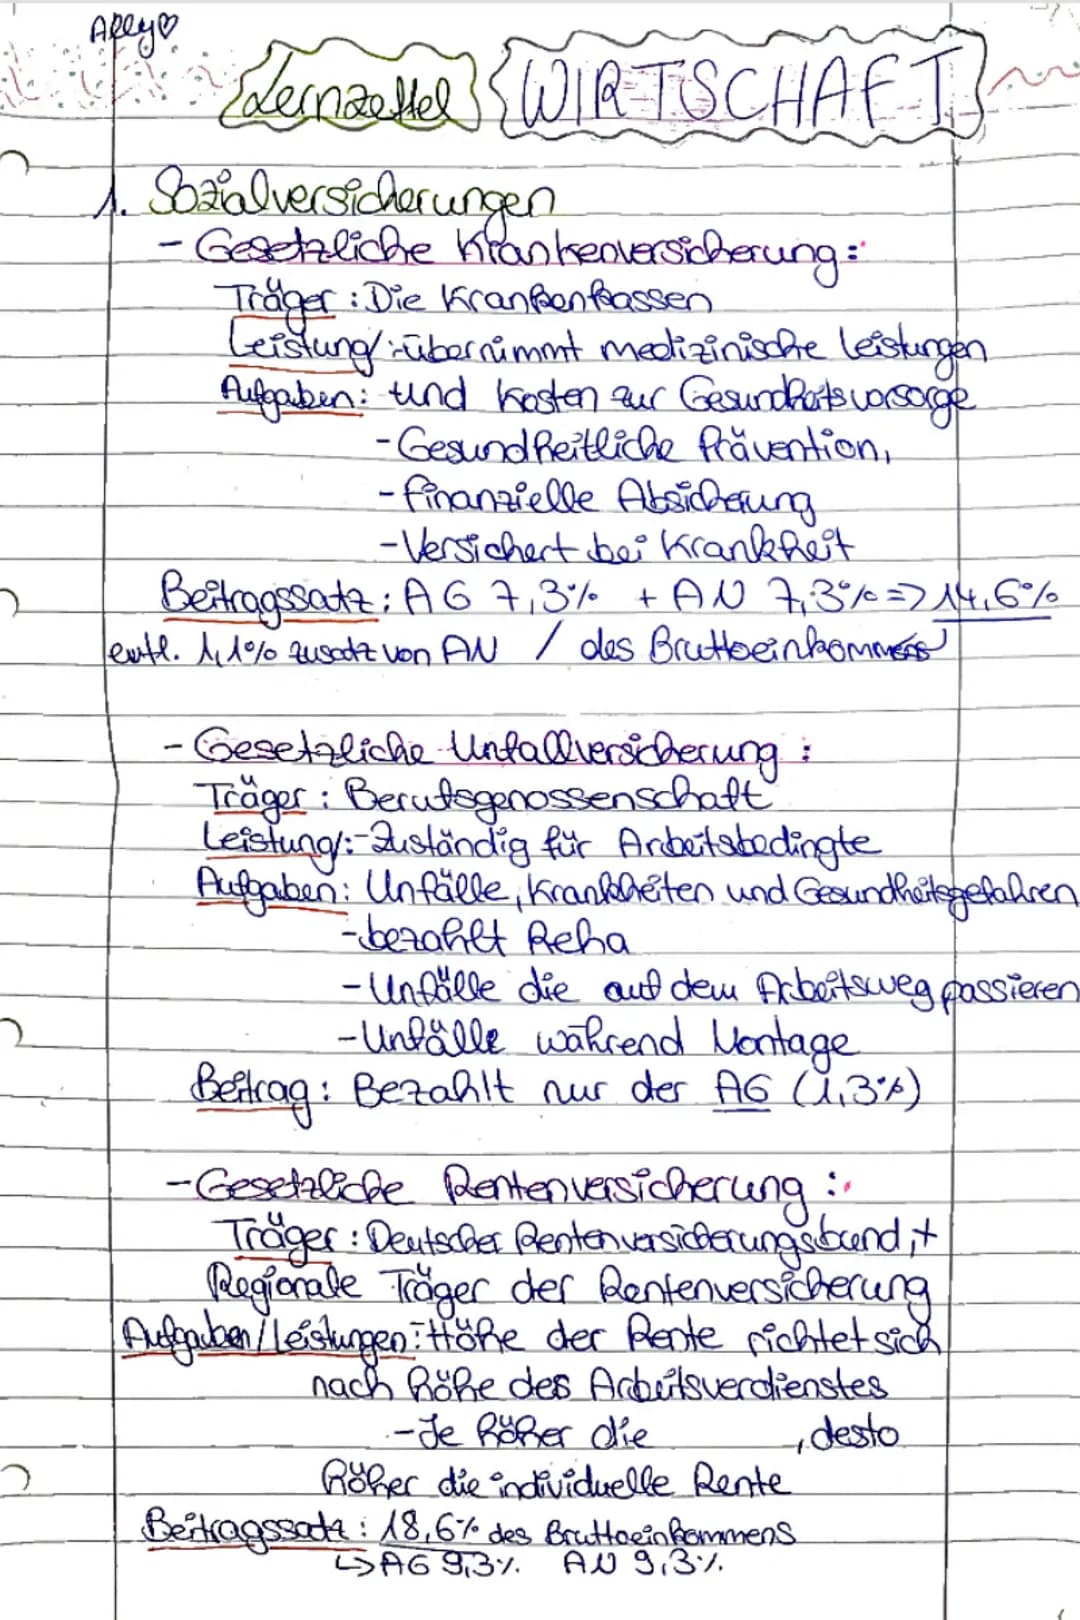 Ally♡
Lernzettel WIRTSCHAFT
1. Sozialversicherungen
- Gesetzliche Krankenversicherung:
Träger: Die Krankenkassen
Leistung/: - übernimmt medizinische Leistungen
Aufgaben: und Kosten zur Gesundheitsvorsorge
- Gesundheitliche Prävention,
- finanzielle Absicherung
- Versichert bei Krankheit
Beitragssatz: AG 7,3% + AN 7,3% => 14,6%
evtl. 1,1% zusatz von AN / des Bruttoeinkommens
- Gesetzliche Unfallversicherung:
Träger: Berufsgenossenschaft
Leistung/: - Zuständig für Arbeitsbedingte
Aufgaben: Unfälle, Krankheiten und Gesundheitsgefahren
- bezahlt Reha
- Unfälle die auf dem Arbeitsweg passieren
- Unfälle während Montage
Beitrag: Bezahlt nur der AG (1,3%)
- Gesetzliche Rentenversicherung:
Träger: Deutscher Rentenversicherungsbund, +
Regionale Träger der Rentenversicherung
Aufgaben/Leistungen: Höhe der Rente richtet sich
nach Höhe des Arbeitsverdienstes
- Je höher die , desto
höher die individuelle Rente
Beitragssatz: 18,6% des Bruttoeinkommens
↳ AG 9,3% AN 9,3%